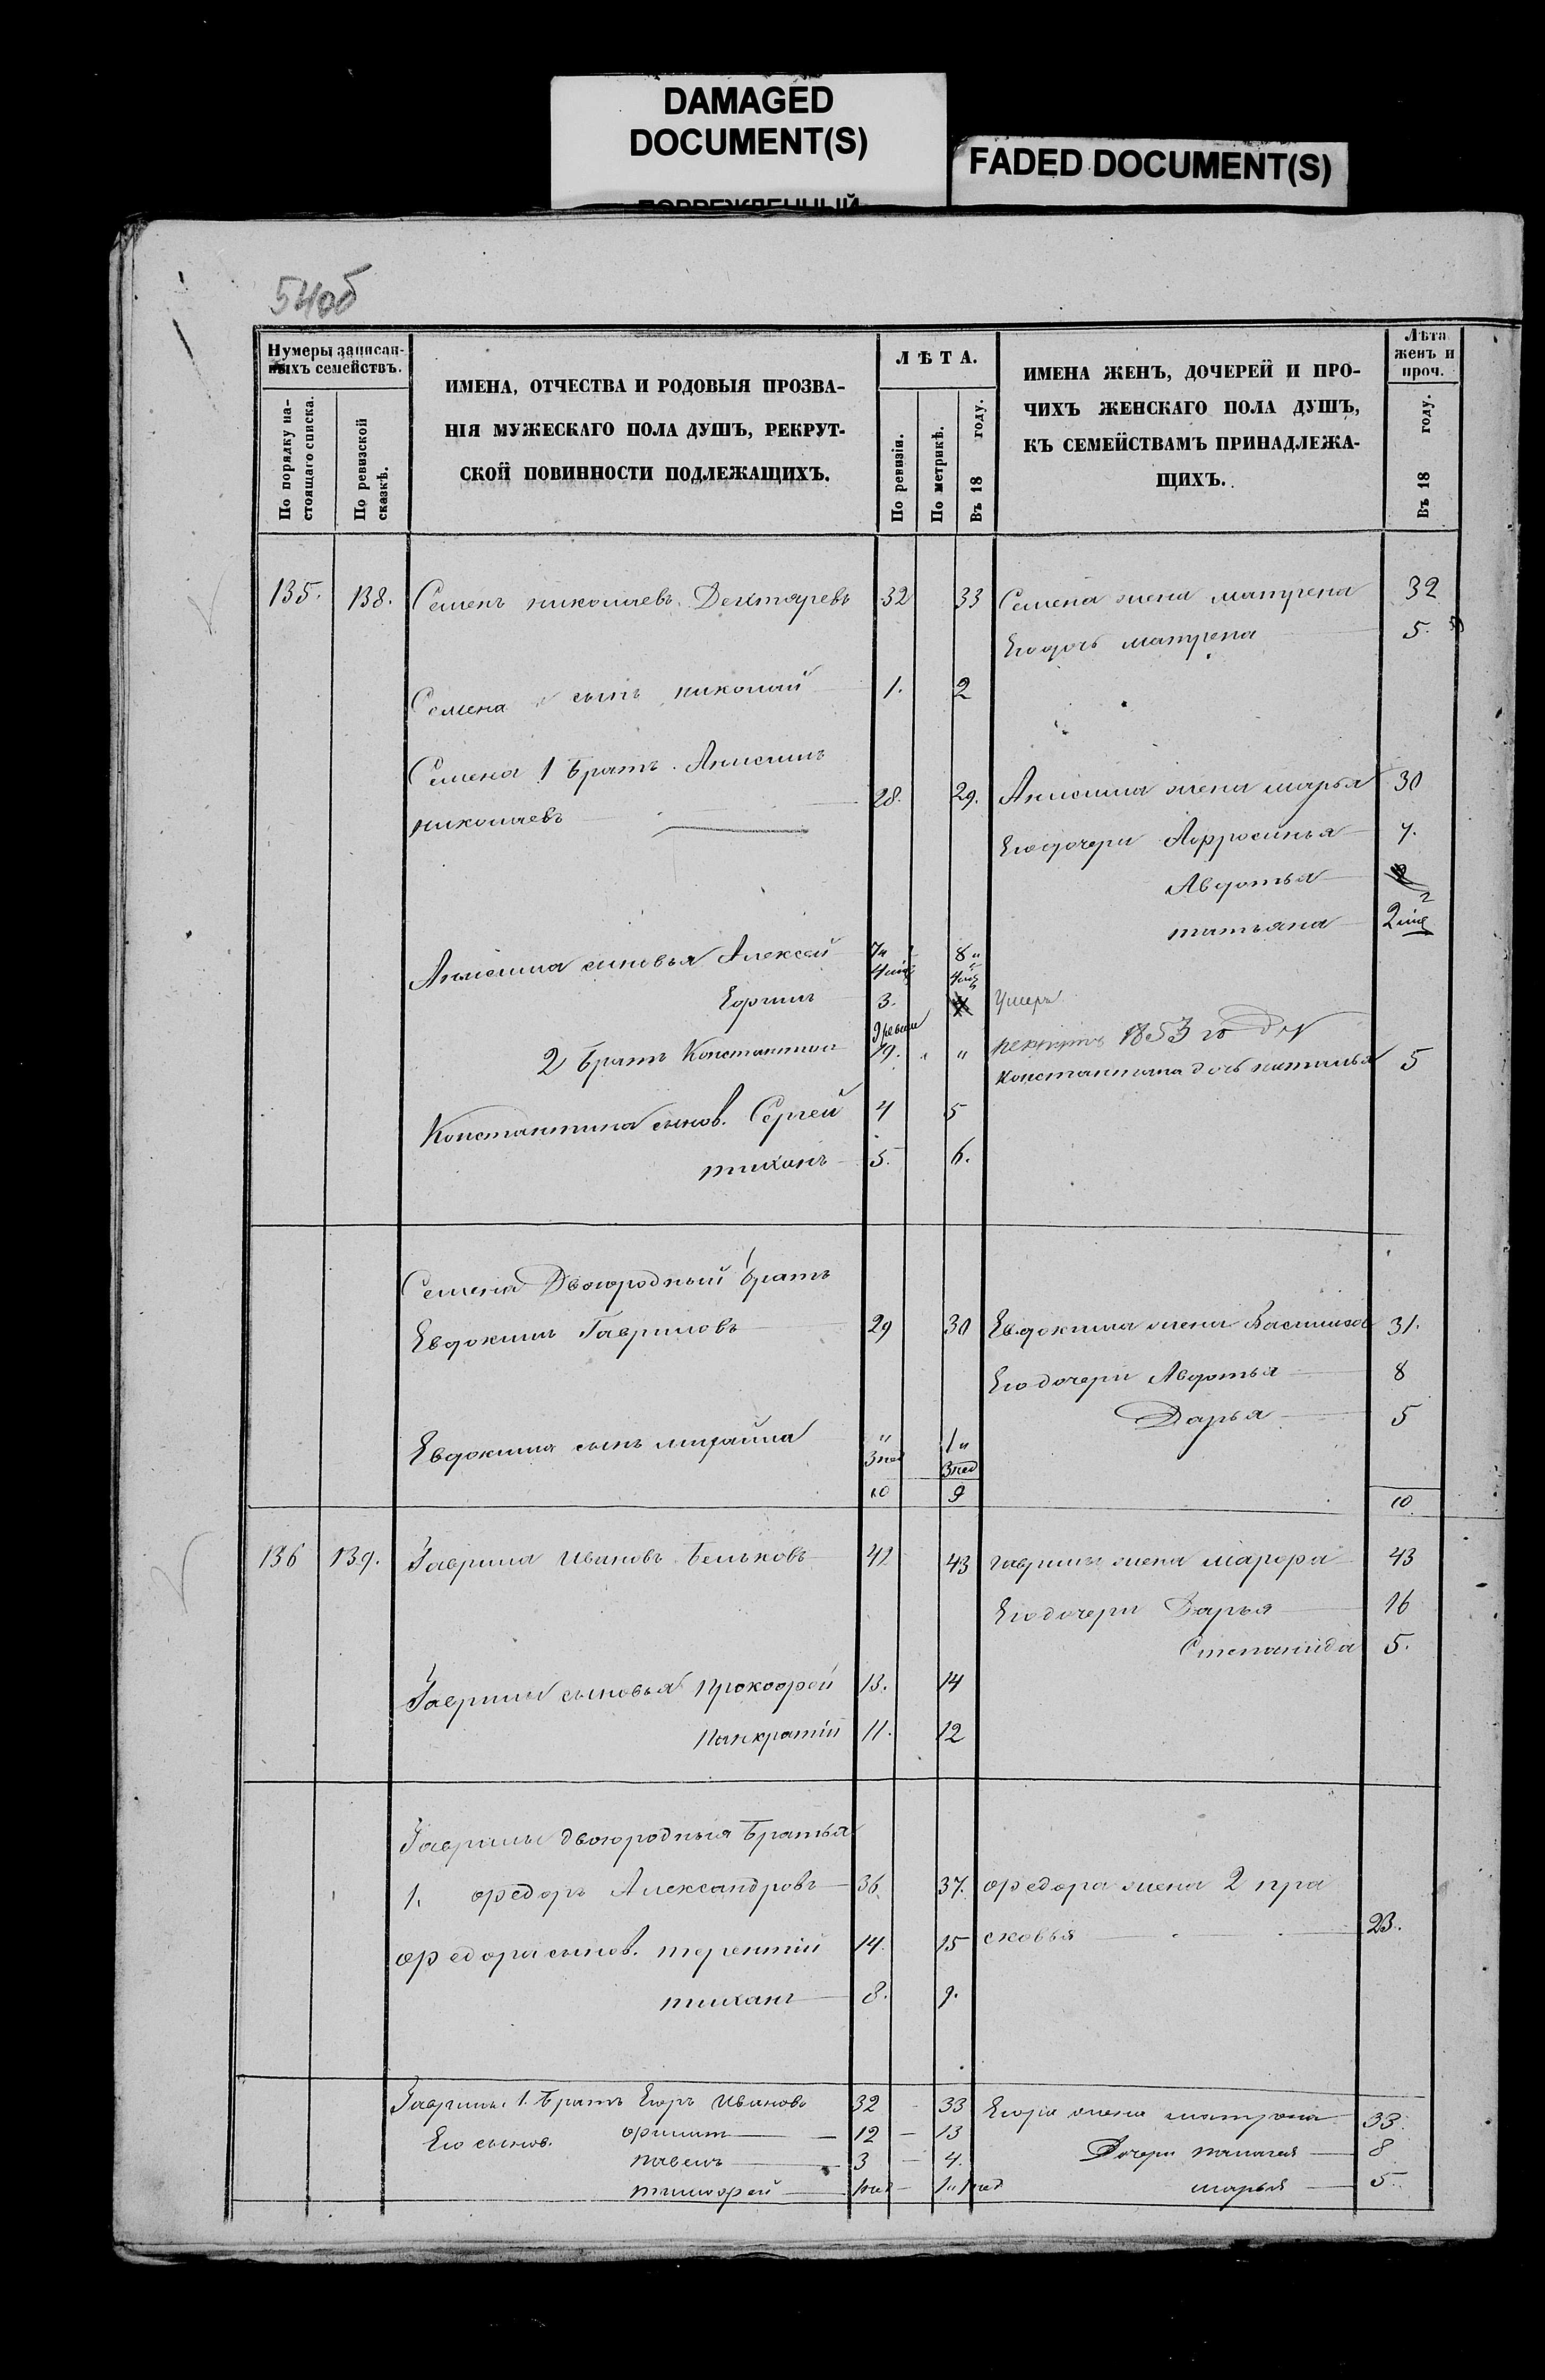 DAMAGED
DOCUMENT(S)
FADED DOCUMENT(S)
ПОВРЕЖДЕННЫЙ
54об
Нумеры записан-
ныхъ семействъ.
По порядку на-
стоящаго списка.
По ревизской
сказкѣ.
ИМЕНА, ОТЧЕСТВА И РОДОВЫЯ ПРОЗВА-
НІЯ МУЖЕСКАГО ПОЛА ДУШЪ, РЕКРУТ-
СКОЙ ПОВИННОСТИ ПОДЛЕЖАЩИХЪ.
ЛѢТА.
По ревизіи.
По метрикѣ.
Въ 18 году.
ИМЕНА ЖЕНЪ, ДОЧЕРЕЙ И ПРО-
ЧИХЪ ЖЕНСКАГО ПОЛА ДУШЪ,
КЪ СЕМЕЙСТВАМЪ ПРИНАДЛЕЖА-
ЩИХЪ.
Лѣта
женъ и
проч.
Въ 18 году.
135. 138. Семенъ николаевъ Дехтяревъ 32 33 Семена жена матрена 32
Его дочь матрена 5.
Семена сынъ николай 1. 2
Семена 1 братъ Анисимъ
николаевъ 28. 29. Анисима жена марья 30
Его дочери Афросинья 7.
Авдотья
татьяна
Анисима сыновья Алексей 7 8
Ефимъ 3. Умеръ
2 братъ Константинъ 19. " рекрутъ 1853 го
Константина дочь наталья 5
Константина сынов. Сергей 4 5
тиханъ 5. 6.
Семена Двоюродный братъ
Евдокимъ Гавриловъ 29 30 Евдокима жена Василиса 31.
Его дочери Авдотья 8
Дарья 5
Евдокима сынъ михайла " 1"
3 нед 3 нед
10 9 10
136 139. Гаврила Ивановъ Бельковъ 42 43 гаврилы жена марфа 43
Его дочери Дарья 16
Степанида 5.
Гаврилы сыновья прокофей 13. 14
панкратій 11. 12
Гаврилы двоюродныя братья
1. федоръ Александровъ 36 37. федора жена 2 пра
сковья 23.
федора сынов. терентій 14. 15
тиханъ 8. 9.
Гаврилы 1. братъ Егоръ Ивановъ 32 33 Егора жена матрена 33
Его сынов. филипъ 12 13 Дочери палагея 8
павелъ 3 4. марья 5.
тимофей 1 нед 1 " 1 нед